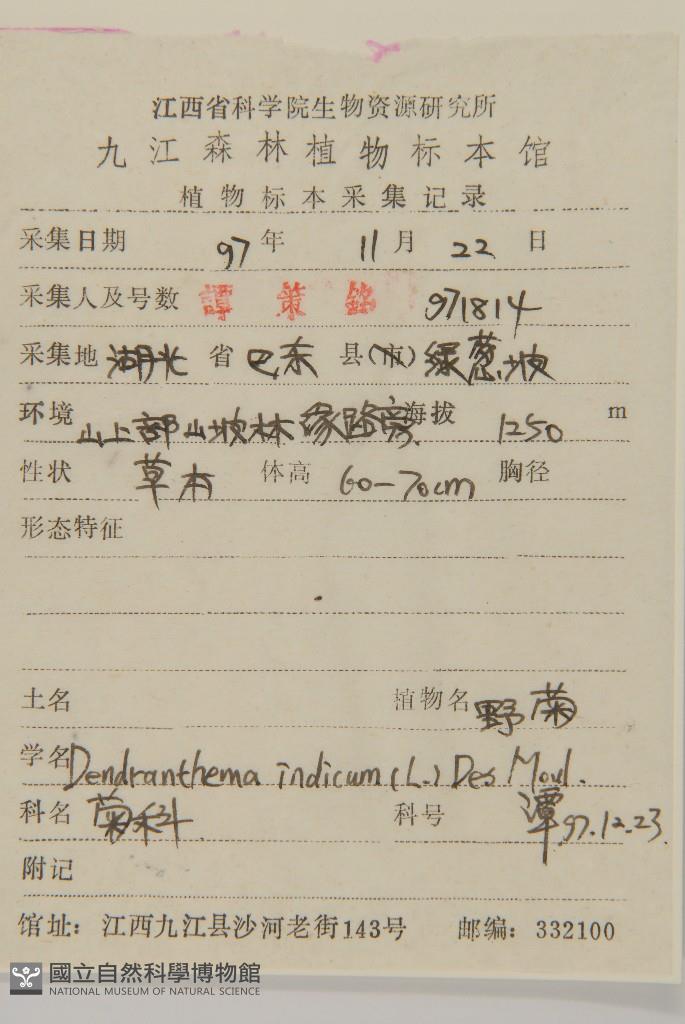 江西省科学院生物资源研究所
九江森林植物标本馆
植物标本采集记录
采集日期 97 年 11 月 22 日
采集人及号数 譚策銘 971814
采集地 湖北 省 巴东 县(市) 绿葱坡
环境 山上部山坡林缘路旁. 海拔 1250 m
性状 草本 体高 60-70cm 胸径
形态特征
土名 植物名 野菊
学名 Dendranthema indicum (L.) Des Moul.
科名 菊科 科号 97.12.23.
附记
馆址：江西九江县沙河老街143号 邮编：332100
國立自然科學博物館
NATIONAL MUSEUM OF NATURAL SCIENCE